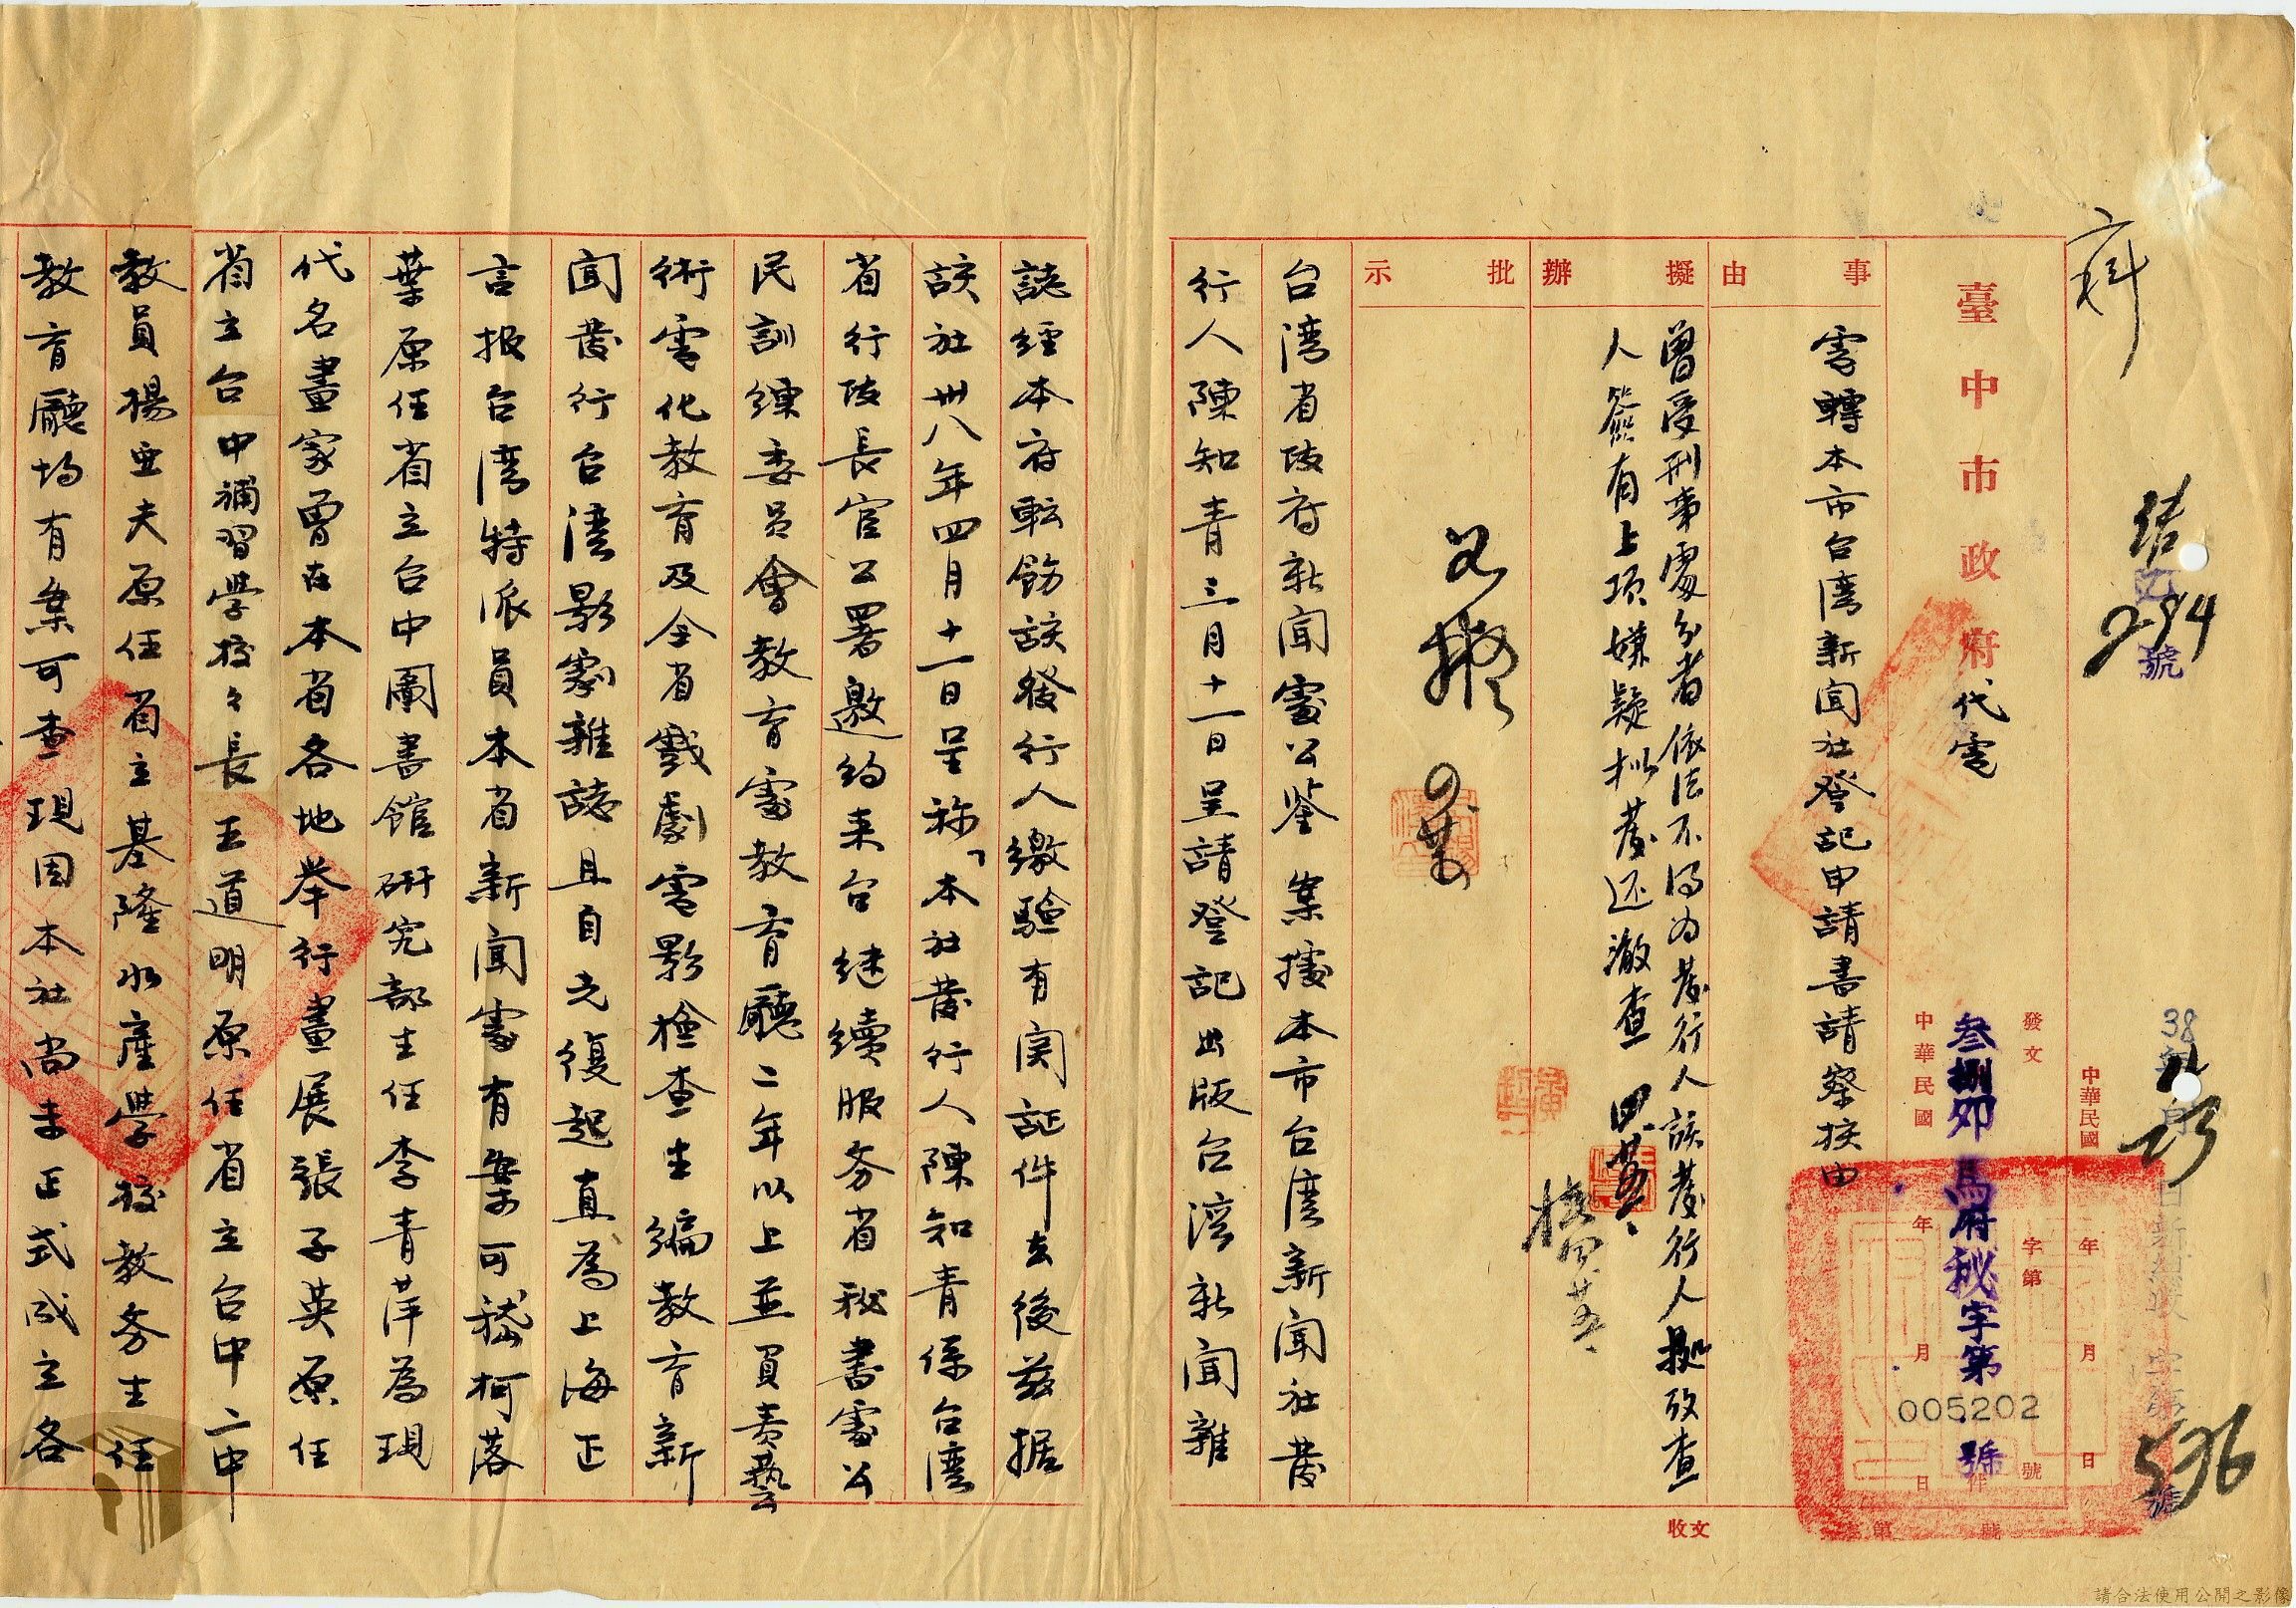 六科
臺中市政府代電
發文
中華民國 年 月 日
叁捌卯馬府秘字第005202號
事由
電轉本市台湾新闻社登記申請書請察核由
擬辦
曾受刑事處分者依法不得为发行人該发行人
人簽有上項嫌疑拟发还澈查
批示
如擬
台湾省政府新闻處公鉴案據本市台湾新闻社发
行人陳知青三月十一日呈請登記出版台湾新闻雜
誌經本府転飭該發行人繳驗有関証件去後茲据
該社卅八年四月十一日呈称「本社發行人陳知青係台湾
省行政長官公署邀約来台継續服务省秘書處公
民訓練委員會教育處教育廳二年以上並負责藝
術電化教育及全省戲劇電影檢查主编教育新
闻發行台湾影劇雜誌且自光復起直為上海正
言报台湾特派員本省新闻處有案可稽柯落
葉原任省立台中圖書館研究部主任李青萍為現
代名畫家曾在本省各地举行畫展張子英原任
省立台中補習學校々長王道明原任省立台中二中
教員楊亜夫原任省立基隆水產學校教务主任
教育廳均有案可查現因本社尚未正式成立各
收文
結
294號
38年
536號
請合法使用公開之影像